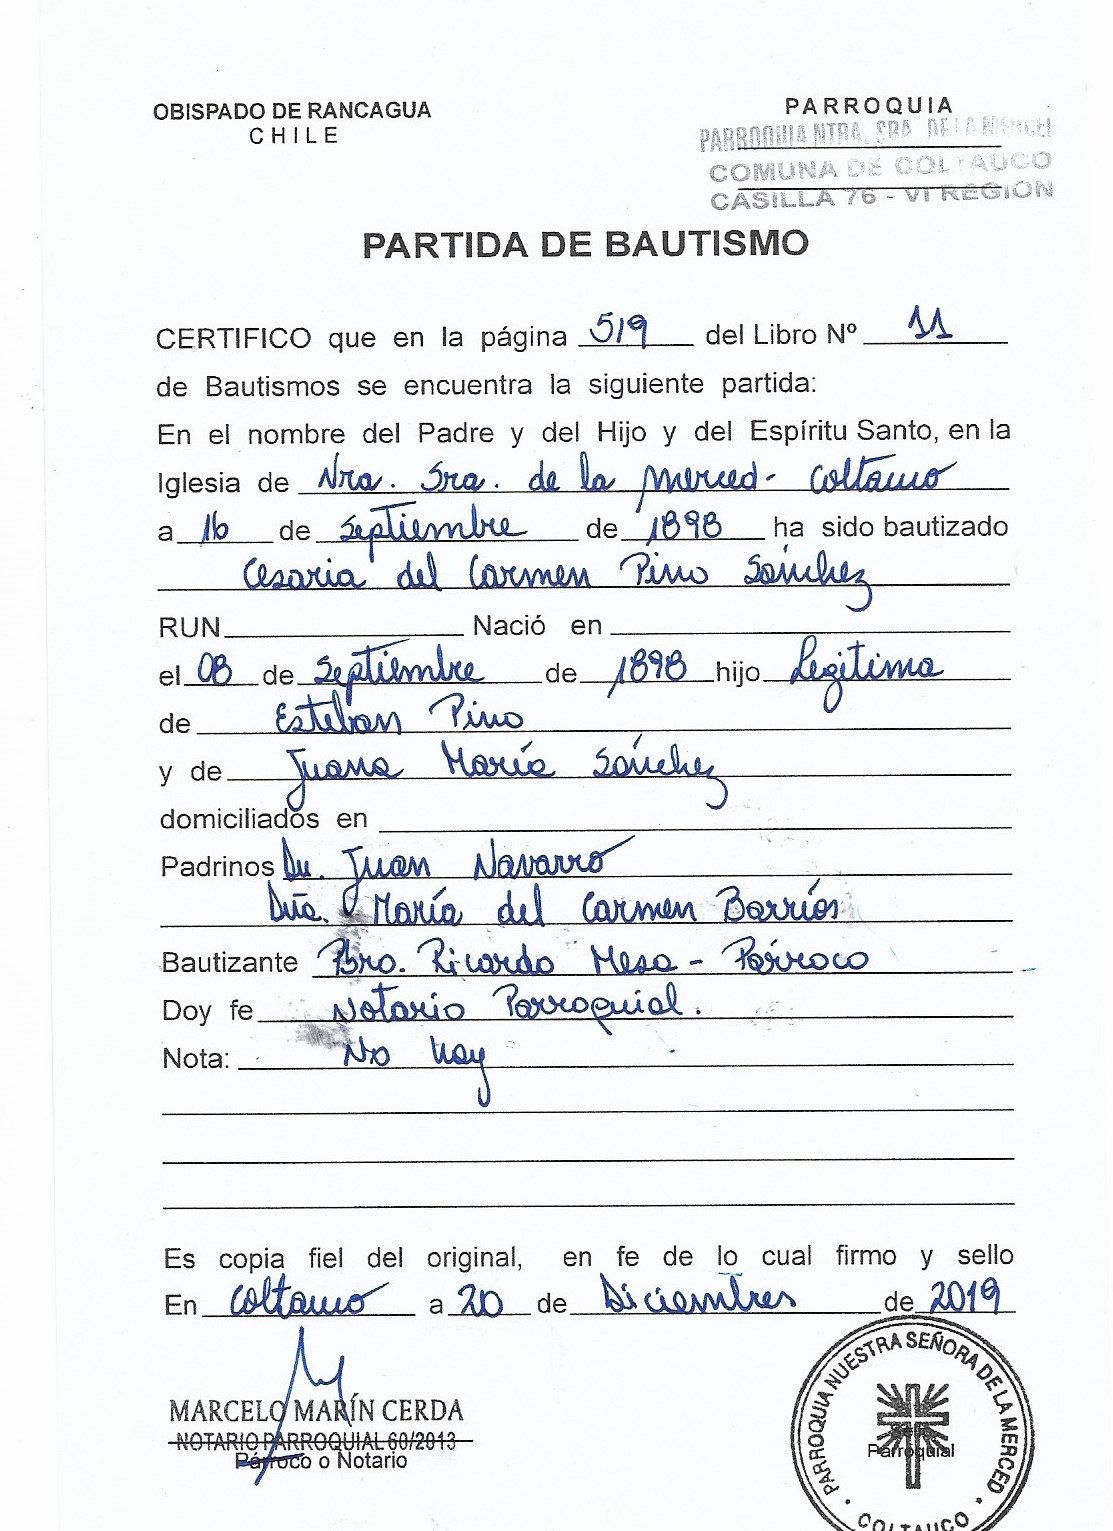 OBISPADO DE RANCAGUA
CHILE
PARROQUIA
PARROQUIA NTRA. SRA. DE LA MERCED
COMUNA DE COLTAUCO
CASILLA 76 - VI REGION
PARTIDA DE BAUTISMO
CERTIFICO que en la página 519 del Libro Nº 11
de Bautismos se encuentra la siguiente partida:
En el nombre del Padre y del Hijo y del Espíritu Santo, en la
Iglesia de Nra. Sra. de la Merced - Coltauco
a 16 de Septiembre de 1898 ha sido bautizado
Cesaria del Carmen Pino Sánchez
RUN Nació en
el 08 de Septiembre de 1898 hijo Legitima
de Esteban Pino
y de Juana María Sánchez
domiciliados en
Padrinos Dn. Juan Navarro
Dña. María del Carmen Barríos
Bautizante Pbro. Ricardo Mesa - Párroco
Doy fe Notario Parroquial.
Nota: No hay
Es copia fiel del original, en fe de lo cual firmo y sello
En Coltauco a 20 de Diciembres de 2019
MARCELO MARÍN CERDA
NOTARIO PARROQUIAL 60/2013
Párroco o Notario
PARROQUIA NUESTRA SEÑORA DE LA MERCED
Parroquial
COLTAUCO